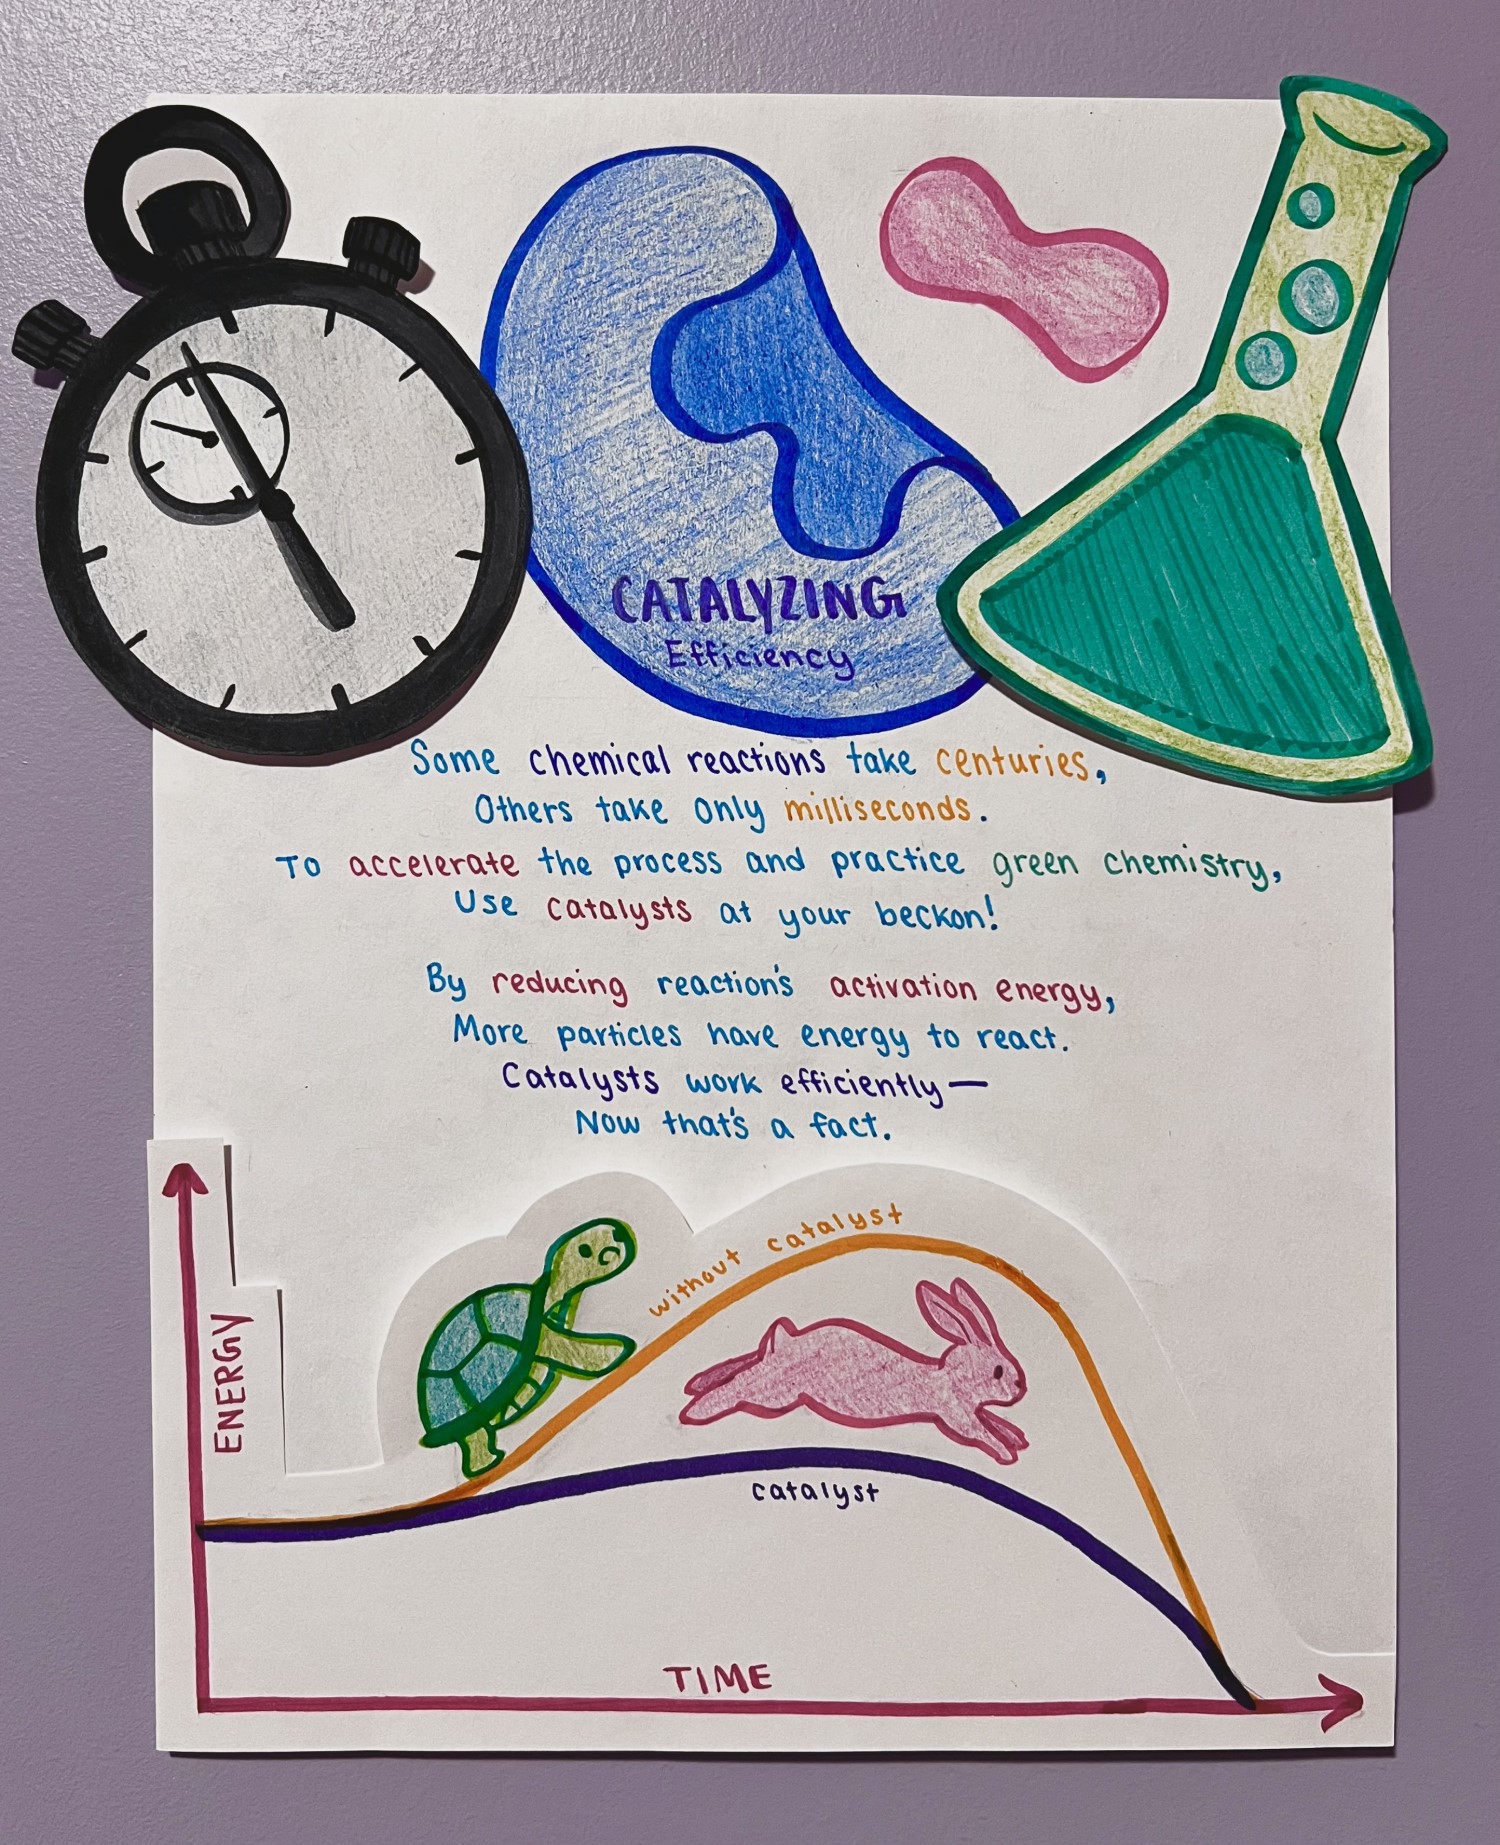 CATALYZING
Efficiency
Some chemical reactions take centuries,
Others take only milliseconds.
To accelerate the process and practice green chemistry,
Use catalysts at your beckon!
By reducing reaction's activation energy,
More particles have energy to react.
Catalysts work efficiently—
Now that's a fact.
ENERGY
without catalyst
catalyst
TIME